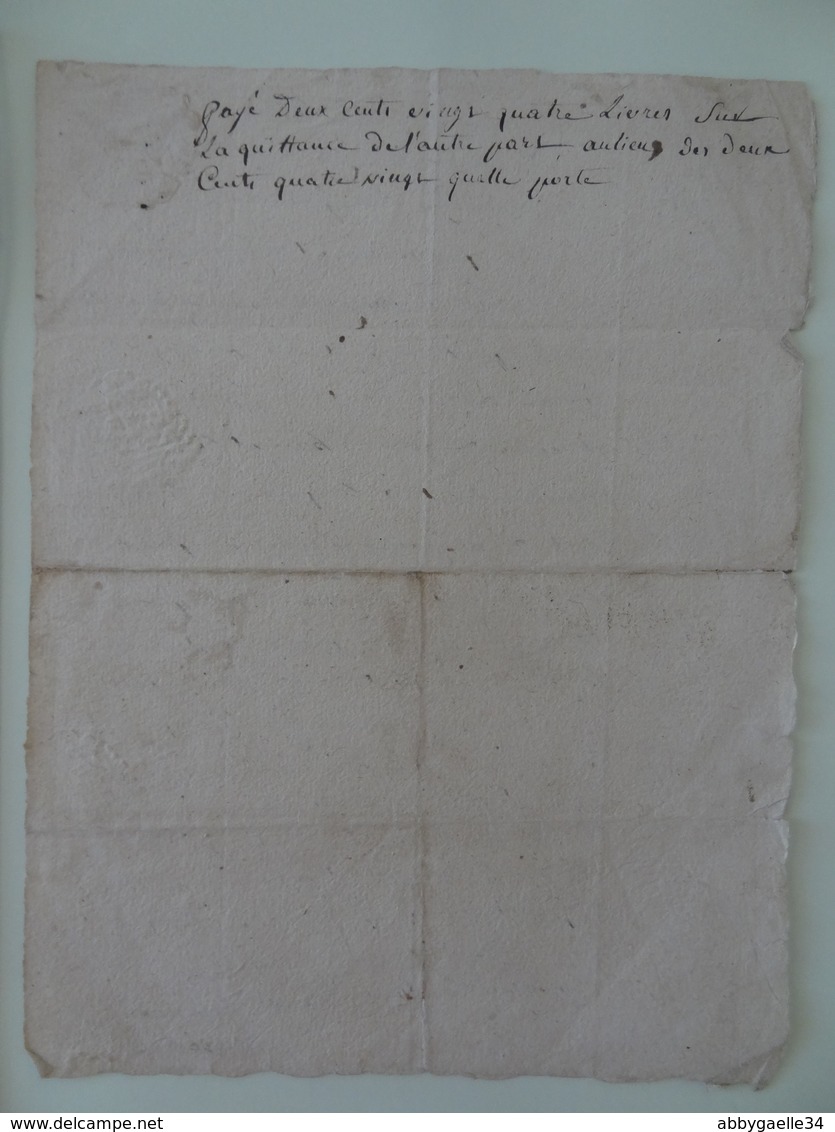 payé Deux Cents vingt quatre Livres Sur
La quittance de l'autre part aulieu des deux
Cents quatre vingt quelle porte
www.delcampe.net
abbygaelle34